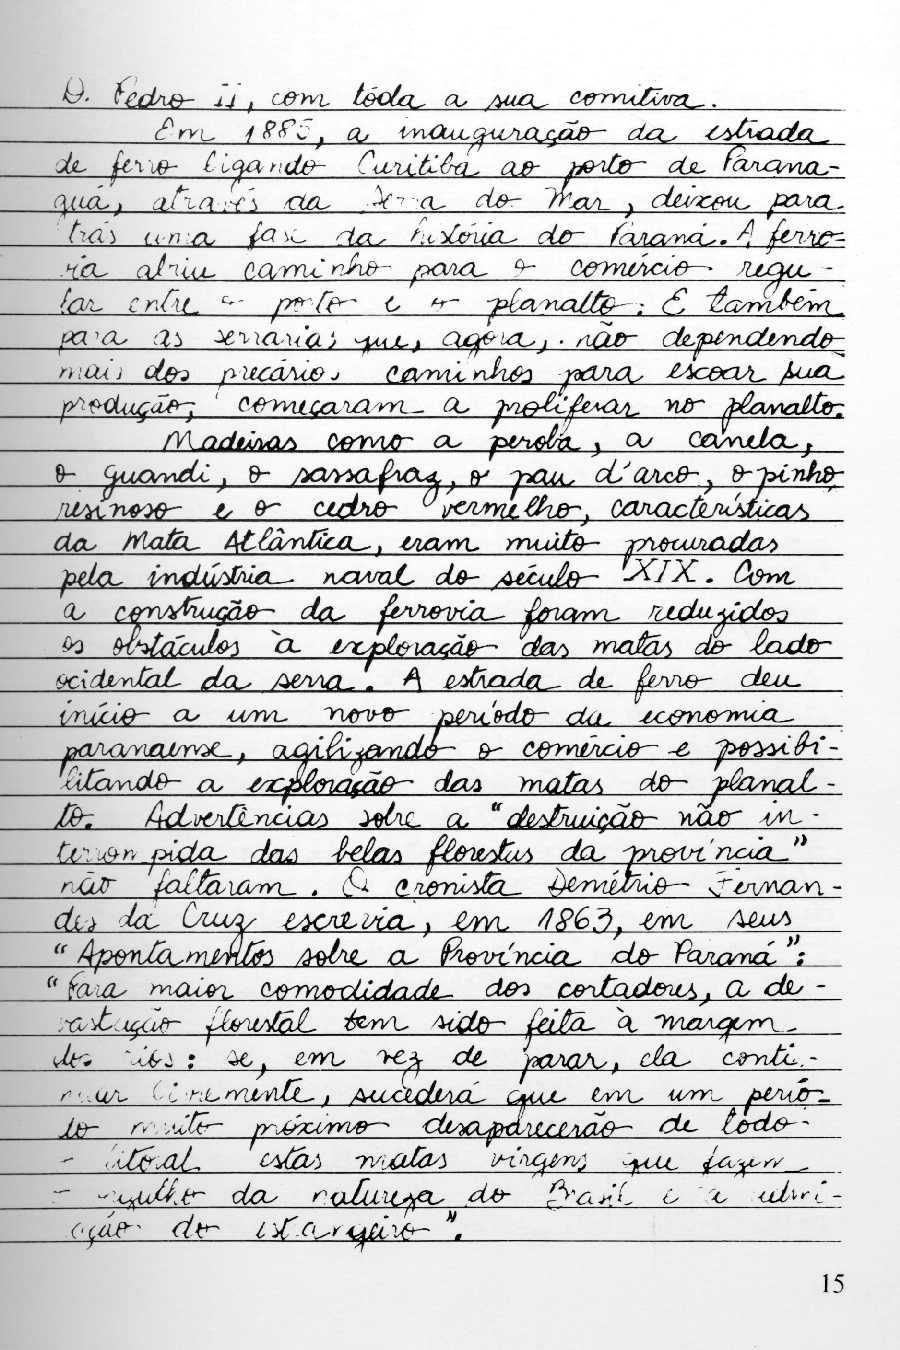 D. Pedro ii, com tôda a sua comitiva.
Em 1885, a inauguração da estrada
de ferro ligando Curitiba ao porto de Parana-
guá, através da Serra do Mar, deixou para
trás uma fase da história do Paraná. A ferro-
via abriu caminho para o comércio regu-
lar entre o porto e o planalto. E também
para as serrarias que, agora, não dependendo
mais dos precários caminhos para escoar sua
produção, começaram a proliferar no planalto.
Madeiras como a peroba, a canela,
o guandi, o sassafraz, o pau d'arco, o pinho
resinoso e o cedro vermelho, características
da Mata Atlântica, eram muito procuradas
pela indústria naval do século XIX. Com
a construção da ferrovia foram reduzidos
os obstáculos à exploração das matas do lado
ocidental da serra. A estrada de ferro deu
início a um novo período da economia
paranaense, agilizando o comércio e possibi-
litando a exploração das matas do planal-
to. Advertências sobre a "destruição não in-
terrompida das belas florestas da província"
não faltaram. O cronista Demétrio Fernan-
des da Cruz escrevia, em 1863, em seus
"Apontamentos sobre a Província do Paraná":
"Para maior comodidade dos cortadores, a de-
vastação florestal tem sido feita à margem
dos rios: se, em vez de parar, ela conti-
nuar livremente, sucederá que em um perío-
do muito próximo desaparecerão de todo
o litoral estas matas virgens que fazem
o orgulho da natureza do Brasil e a admi-
ração do estrangeiro".
15